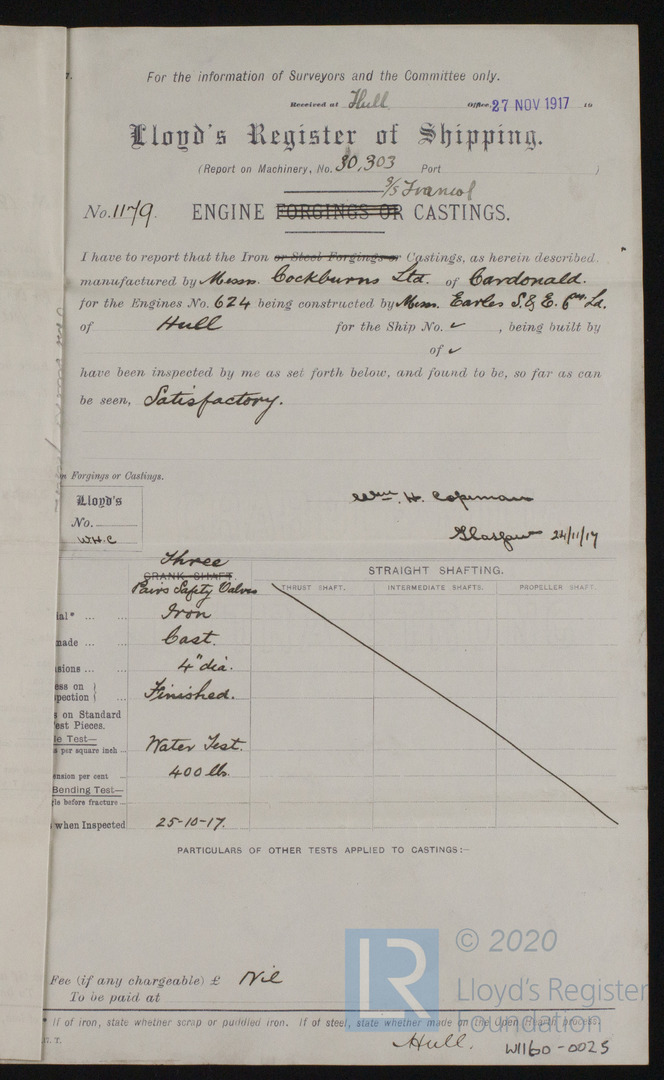 For the information of Surveyors and the Committee only.
Received at Hull Office, 27 NOV 1917 19
Lloyd's Register of Shipping.
(Report on Machinery, No. 30,303 Port )
S/S
No. 1179. ENGINE FORGINGS OR CASTINGS.
I have to report that the Iron or Steel Forgings or Castings, as herein described,
manufactured by Messrs. Cockburns Ltd. of Cardonald.
for the Engines No. 624 being constructed by Messrs. Earles S. & E. Coy. Ld.
of Hull for the Ship No. ✓ , being built by
of ✓
have been inspected by me as set forth below, and found to be, so far as can
be seen, Satisfactory.
Forgings or Castings.
Lloyd's
No.
W.H.C
Wm. H. Copeman
Glasgow 24/11/17
Three
CRANK SHAFT. STRAIGHT SHAFTING.
Pairs Safety Valves THRUST SHAFT. INTERMEDIATE SHAFTS. PROPELLER SHAFT.
ial* ... ... Iron
made ... Cast.
sions ... ... 4" dia.
ess on }
spection } ... Finished.
s on Standard
est Pieces.
le Test— Water Test.
s per square inch ...
ension per cent ... 400 lbs.
Bending Test—
gle before fracture ...
when Inspected 25-10-17.
PARTICULARS OF OTHER TESTS APPLIED TO CASTINGS:—
Fee (if any chargeable) £ Nil
To be paid at
* If of iron, state whether scrap or puddled iron. If of steel, state whether made on the Open Hearth process.
7. T.
Hull. W1160-0025
LR
© 2020
Lloyd's Register
Foundation